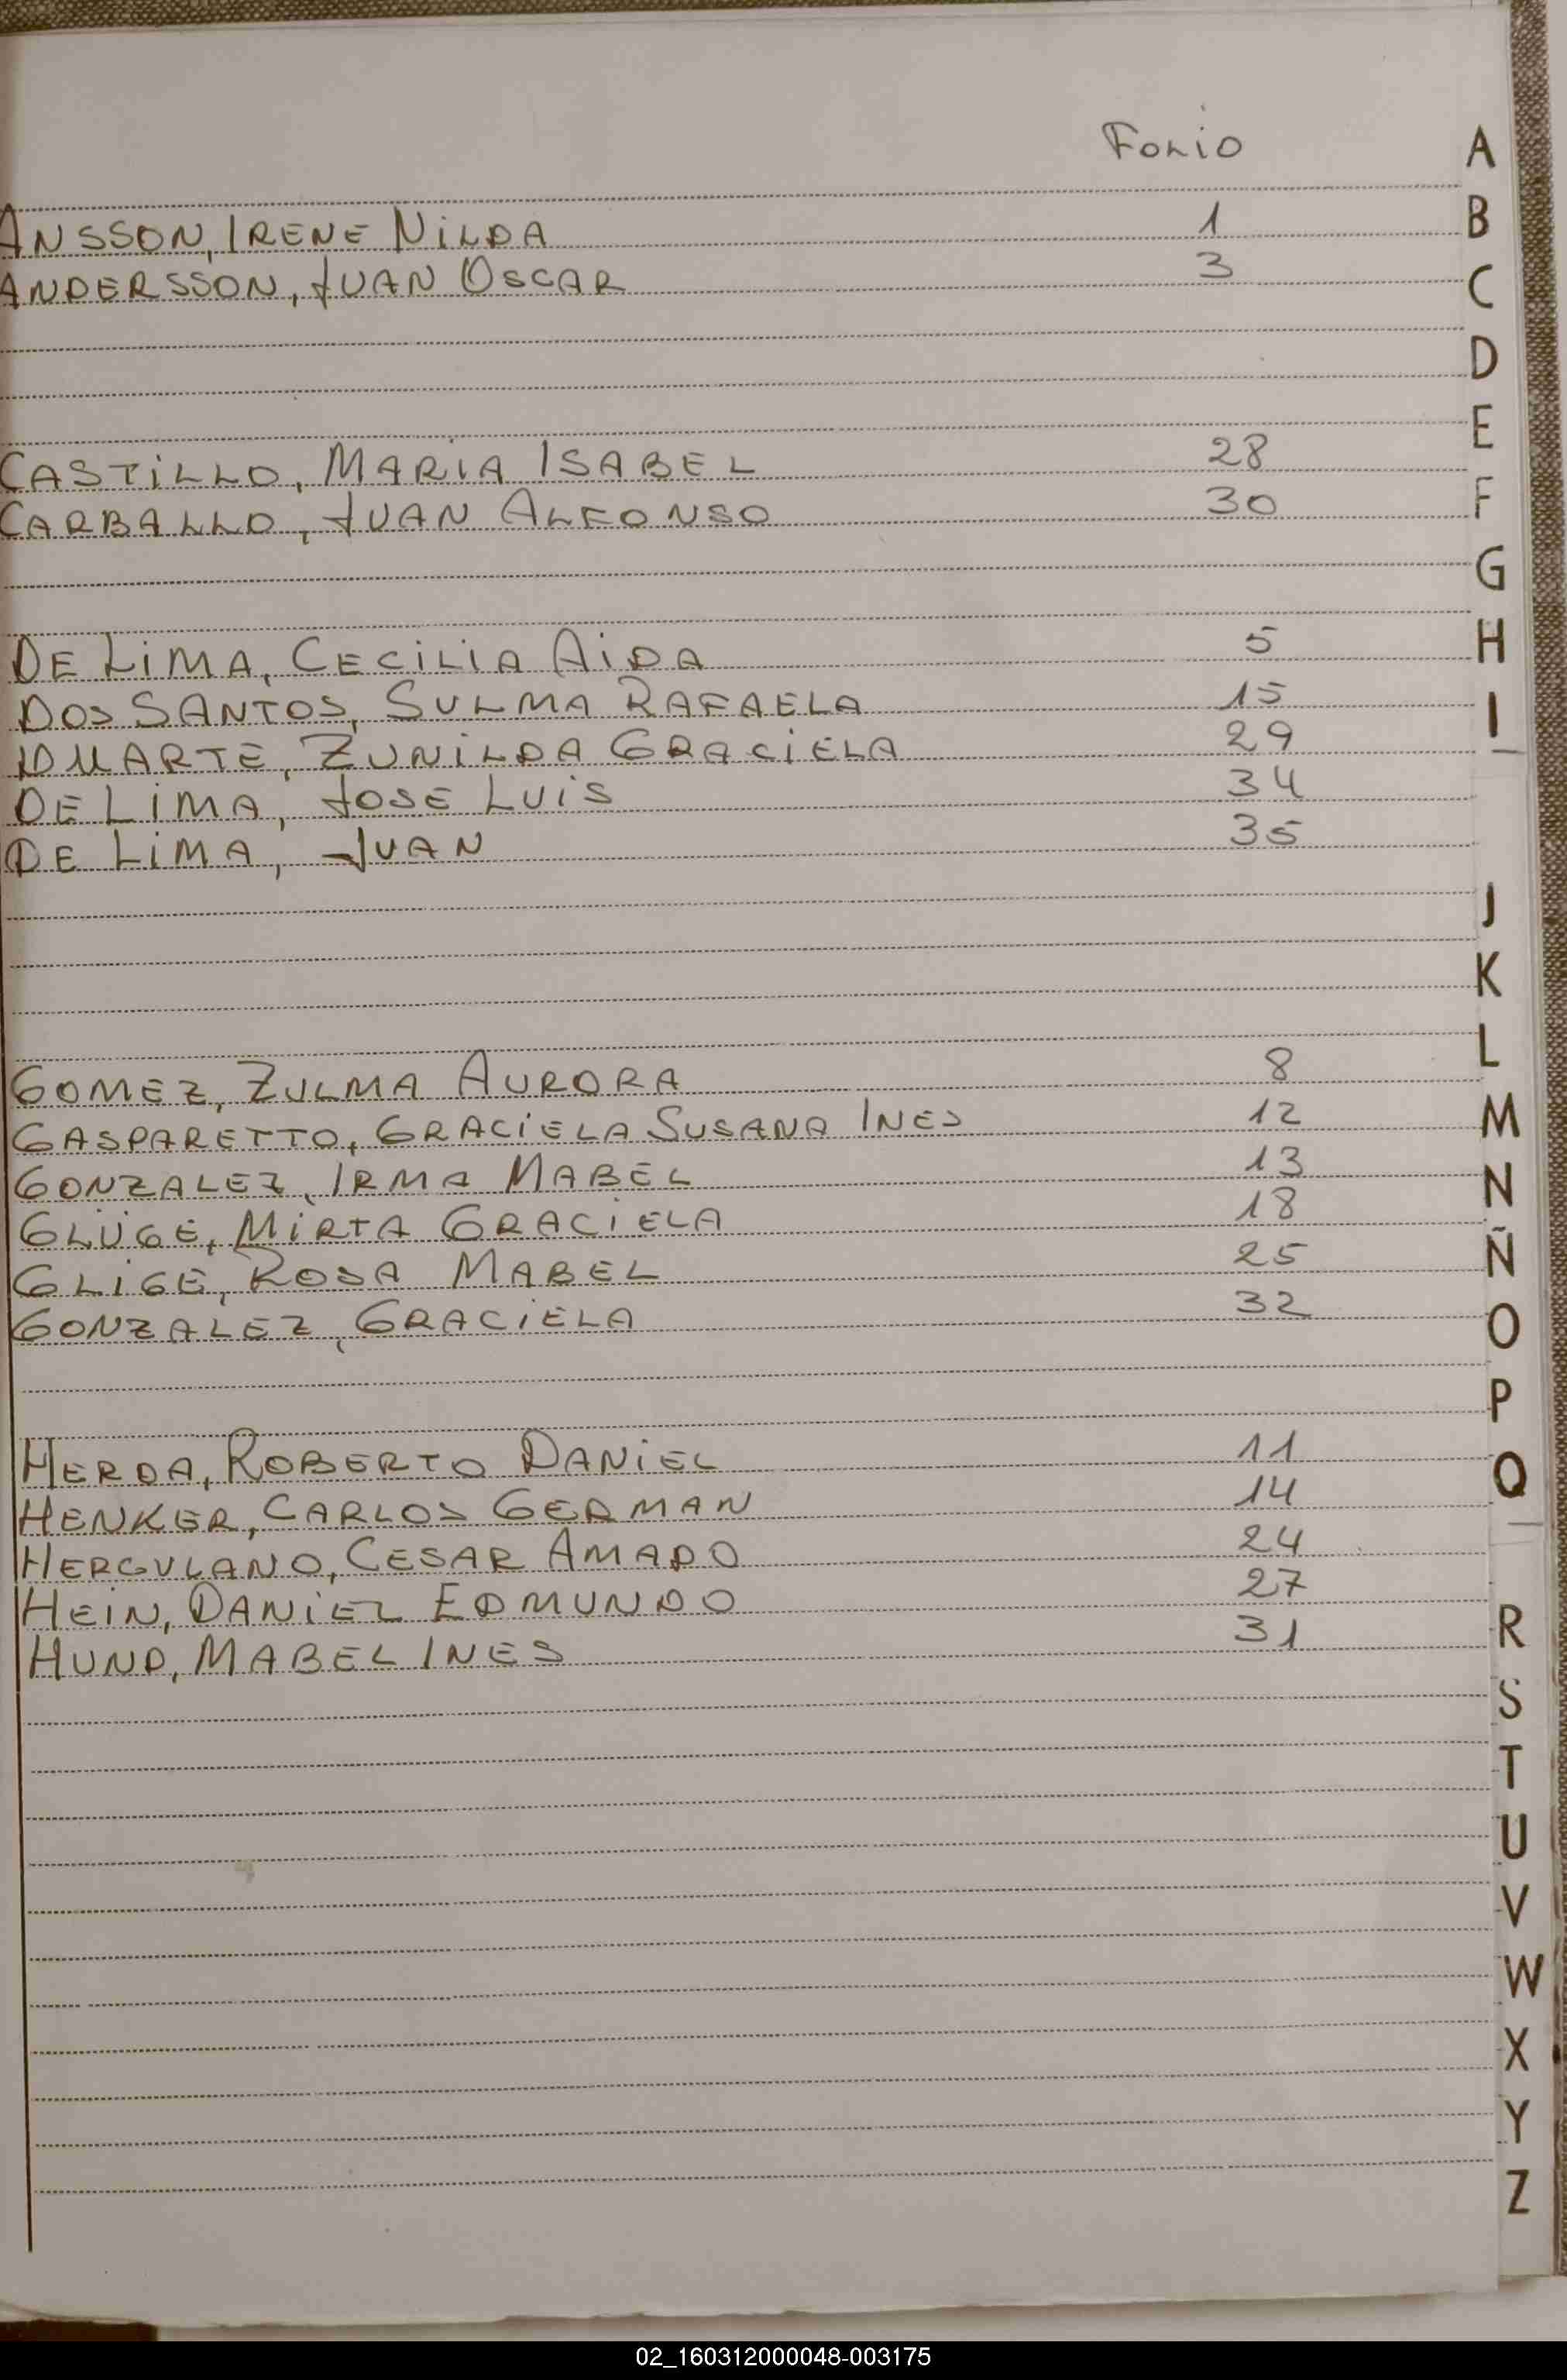 Folio
ANSSON, IRENE NILDA 1
ANDERSSON, JUAN OSCAR 3
CASTILLO, MARIA ISABEL 28
CARBALLO, JUAN ALFONSO 30
DE LIMA, CECILIA AIDA 5
DOS SANTOS, SULMA RAFAELA 15
DUARTE, ZUNILDA GRACIELA 29
DE LIMA, JOSE LUIS 34
DE LIMA, JUAN 35
GOMEZ, ZULMA AURORA 8
GASPARETTO, GRACIELA SUSANA INES 12
GONZALEZ, IRMA MABEL 13
GLÜGE, MIRTA GRACIELA 18
GLIGE, ROSA MABEL 25
GONZALEZ, GRACIELA 32
HERDA, ROBERTO DANIEL 11
HENKER, CARLOS GERMAN 14
HERGULANO, CESAR AMADO 24
HEIN, DANIEL EDMUNDO 27
HUND, MABEL INES 31
A
B
C
D
E
F
G
H
I
J
K
L
M
N
Ñ
O
P
Q
R
S
T
U
V
W
X
Y
Z
02_160312000048-003175